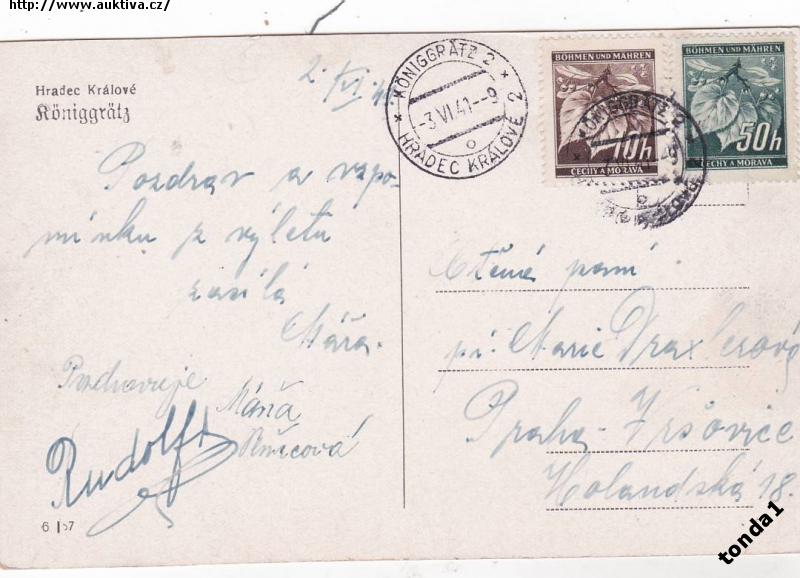 http://www.auktiva.cz/
Hradec Králové
Königgrätz
2. VI. 41
Pozdrav a vzpo-
mínku z výletu
zasílá
Mára.
Pozdravuje
Máňa
Rudolf
6 57
KÖNIGGRÄTZ 2
-3.VI.41--9
HRADEC KRÁLOVÉ 2
BÖHMEN UND MÄHREN
10h
ČECHY A MORAVA
BÖHMEN UND MÄHREN
50h
ČECHY A MORAVA
KÖNIGGRÄTZ 2
Ctěná paní
pí. Marie Draxlerová
Praha - Vršovice
Holandská 18.
tonda1